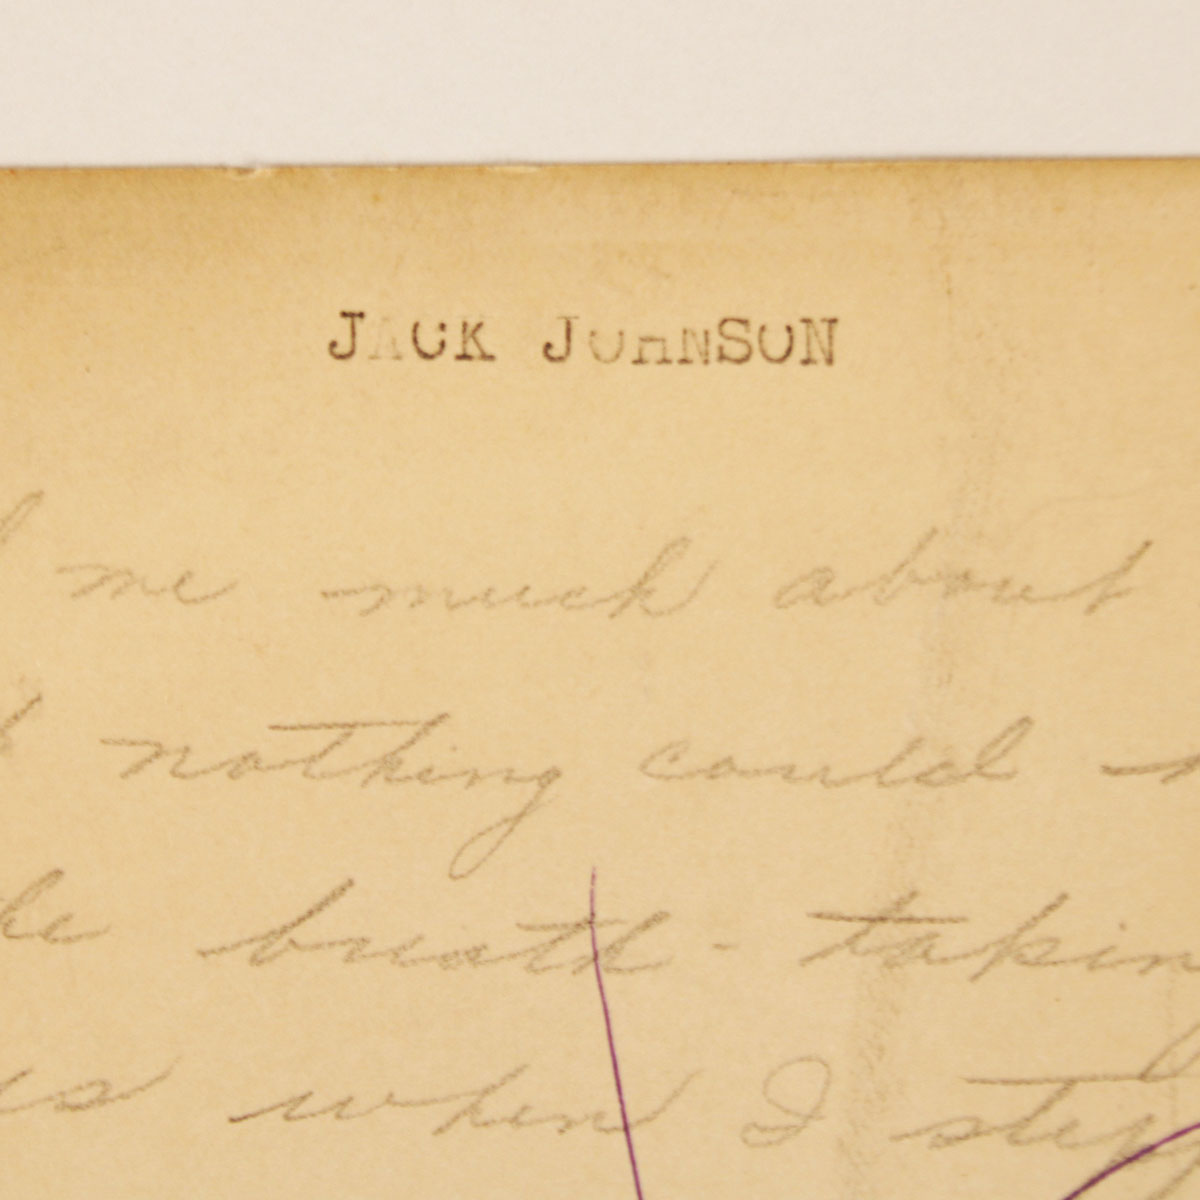 JACK JOHNSON
me much about
nothing could
breath-taking
when I step